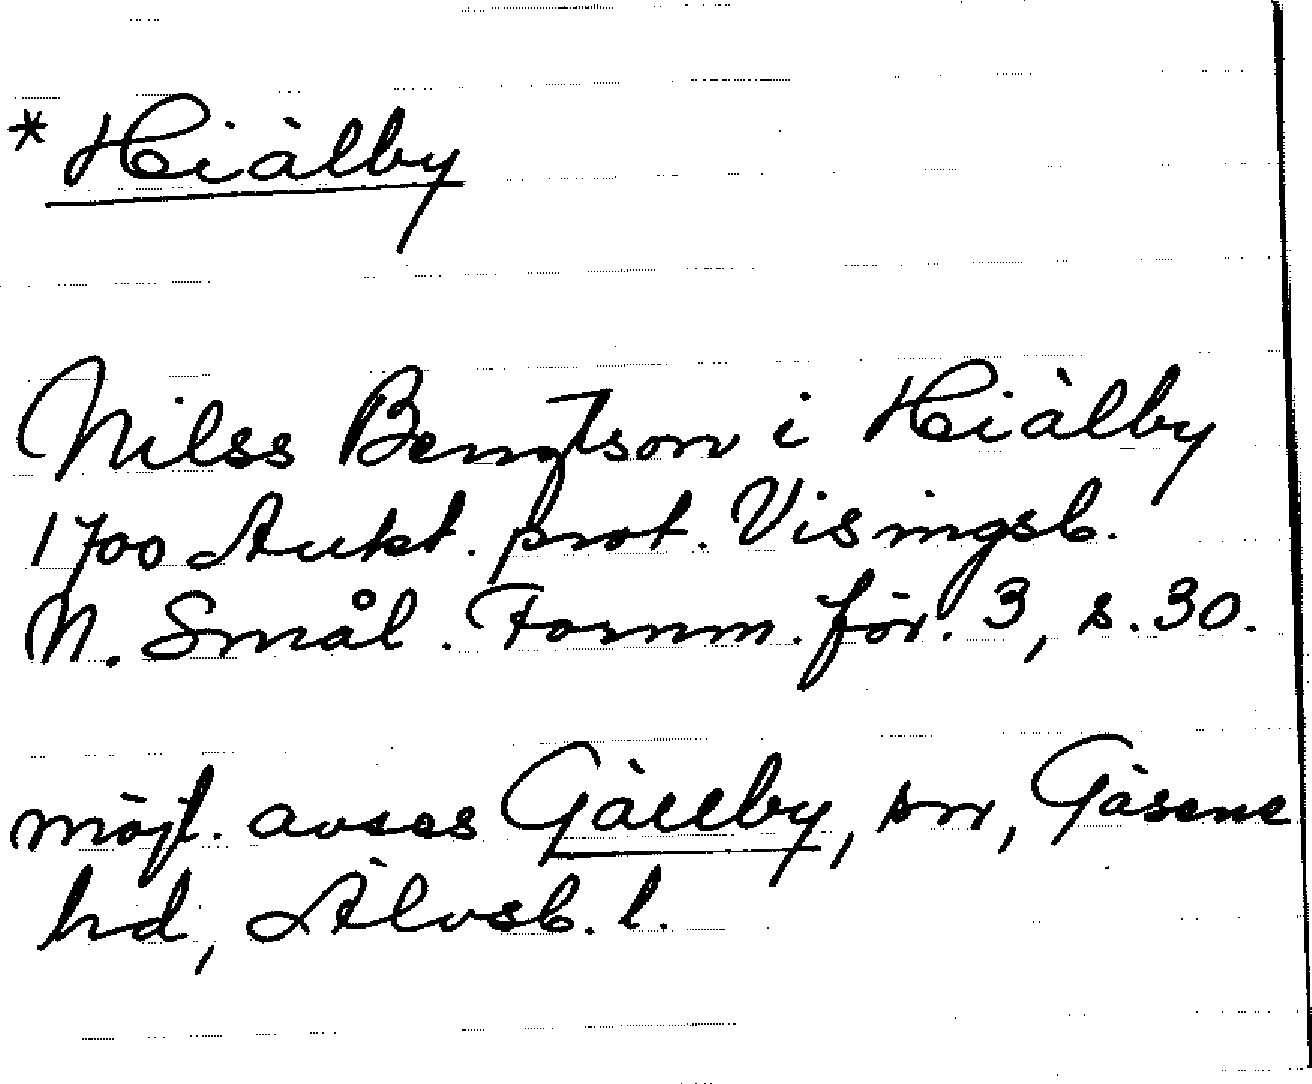 * Hiälby
Nilss Bengtson i Hiälby
1700 Aukt. prot. Visingsb.
N. Smål. Fornm. för. 3, s. 30.
möjl. avses Gällby, sn, Gäsene
hd, Älvsb. l.